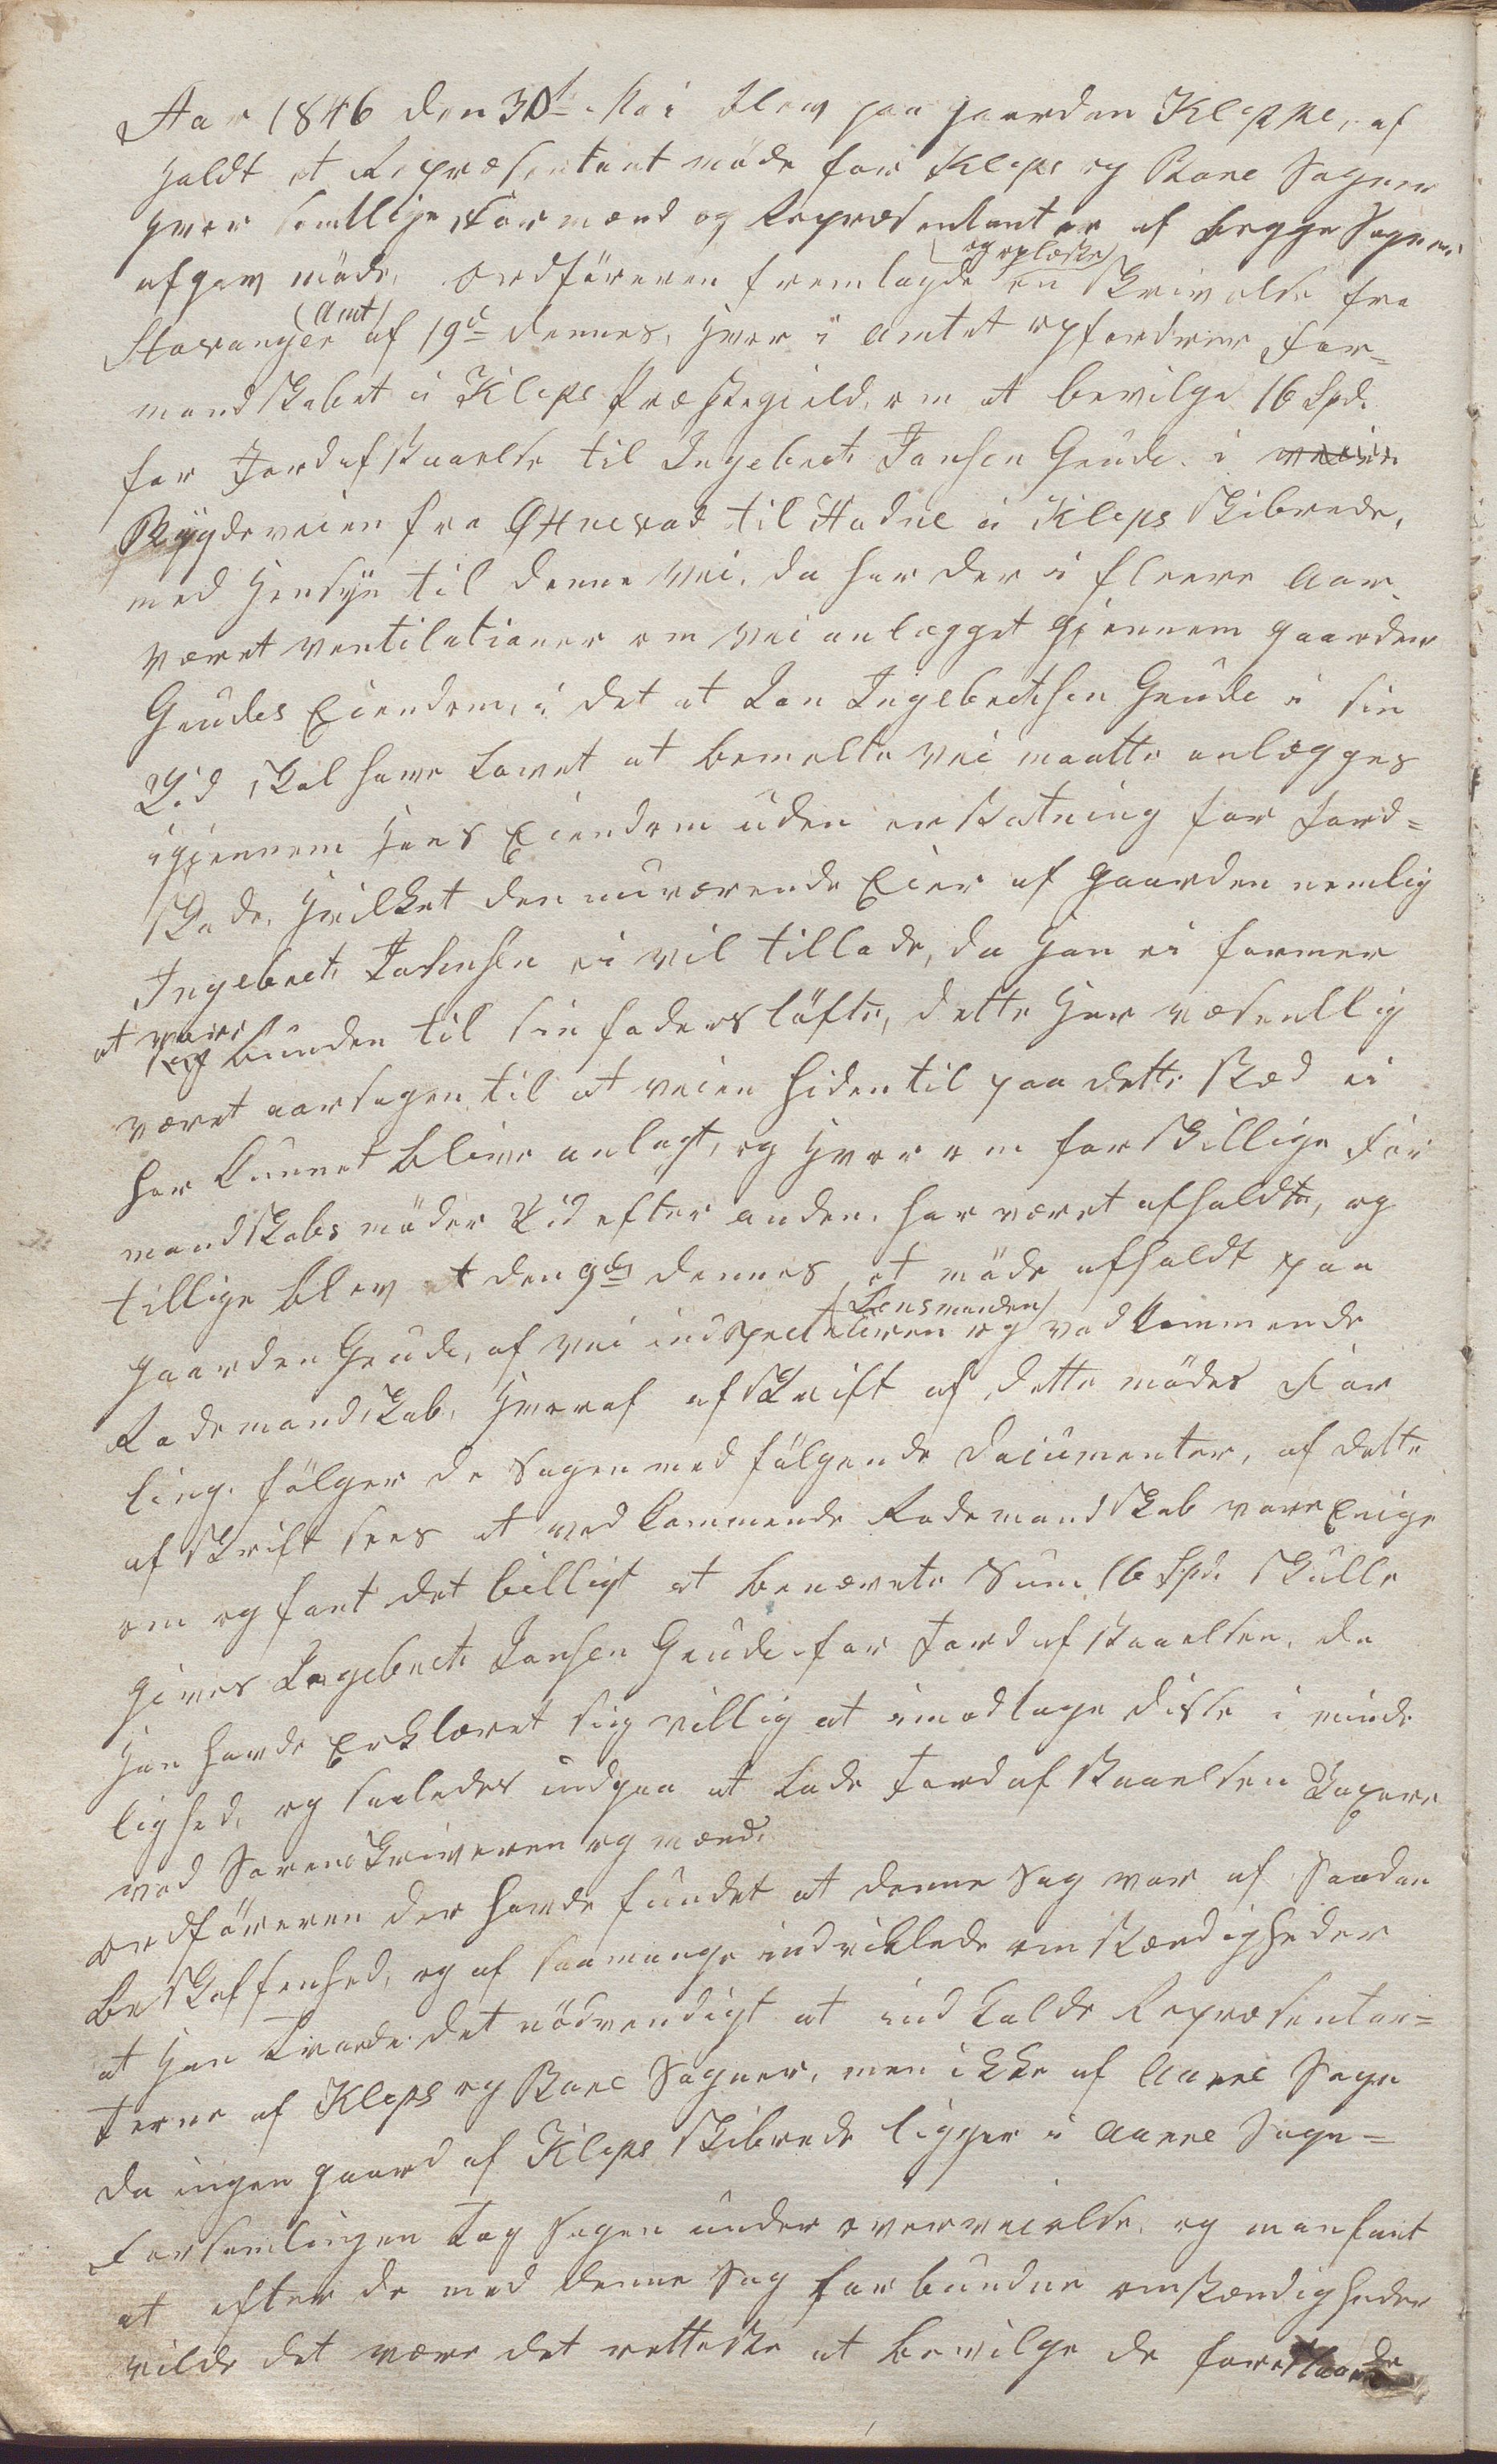 Aar 1846 den 30te Mai blev paa gaarden Kleppe, af
holdt et Repræsentant möde for Kleps og Bore Sogner
hvor samtlige Formænd og Repræsentanter af begge Sogner
afgav möde, Ordföreren fremlagde og oplæste en Skrivelse fra
Stavanger Amt af 19de dennes, hvor i Amtet opfordrer For=
mandskabet i Kleps Præstegield, om at bevilge 16 Spd.
for Jordafstaaelse til Ingebret Jansen Giude i veien
Bygdeveien fra Öxnevad til Hodne i Kleps Skibrede,
med Hensyn til denne Vei, da har der i fleere Aar
været ventilationer om Vei anlægget gjennem gaarden
Giudes Eiendom, i det at Jan Ingebretsen Giude i sin
Tid skal have lovet at bemelte Vei maatte anlægges
igjennem hans Eiendom uden erstatning for Jord=
skade, hvilket den nuværende Eier af gaarden nemlig
Ingebret Jansen ei vil tillade, da han ei formener
at være bunden til sin faders löfte, dette har væsentlig
været aarsagen til at veien hidentil paa dette stæd ei
har kunnet blive anlagt, og hvor om forskillige For
mandskabs möder Tid efter anden har været afholdte, og
tillige blev et den 9de dennes et möde afholdt paa
gaarden Giude, af Vei inspecteuren Lensmanden og vedkommende
Rodemandskab, hvoraf afskrift af dette mödes For
ling fölger de Sagen medfölgende Documenter, af dette
afskrift sees at vedkommende Rodemandskab vare Enige
om og fant det billigt at benævnte Sum 16 Spd. skulle
gives Ingebret Jansen Giude for Jordafstaaelsen, da
han havde Erklæret sig villig at imodtage disse i minde
lighed, og saaledes undgaa at lade Jordafstaaelsen Taxere
ved Sorenskriveren og mænd.
Ordföreren der havde fundet at denne Sag var af Saadan
beskaffenhed, og af saamange indviklede omstændigheder
at han troede det nödvendigt at indkalde Repræsentan=
terne af Kleps og Bore Sogner, men ikke af Orre Sogn
da ingen gaard af Kleps Skibrede ligger i Orre Sogn=
Forsamlingen tog Sagen under overveielse, og man fant
at efter de med denne Sag forbundne omstændigheder
vilde det være det retteste at bevilge de foreslaaede